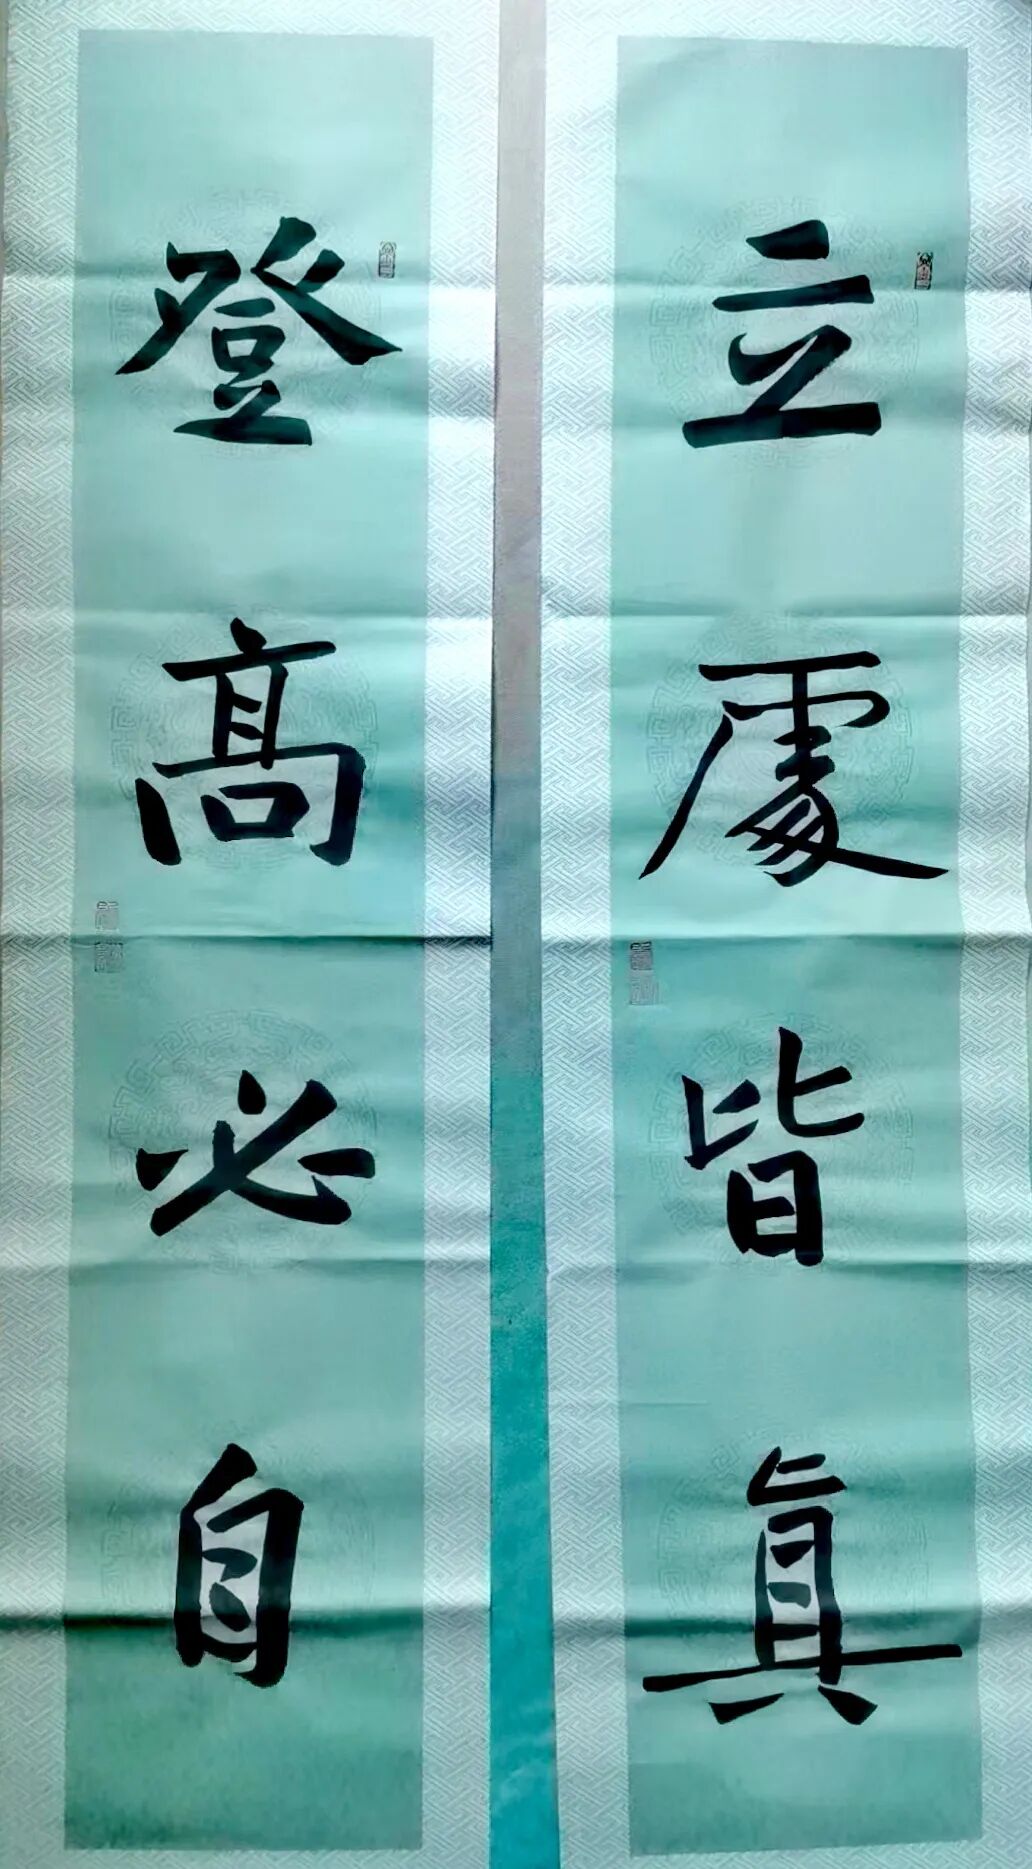 立處皆真
登高必自